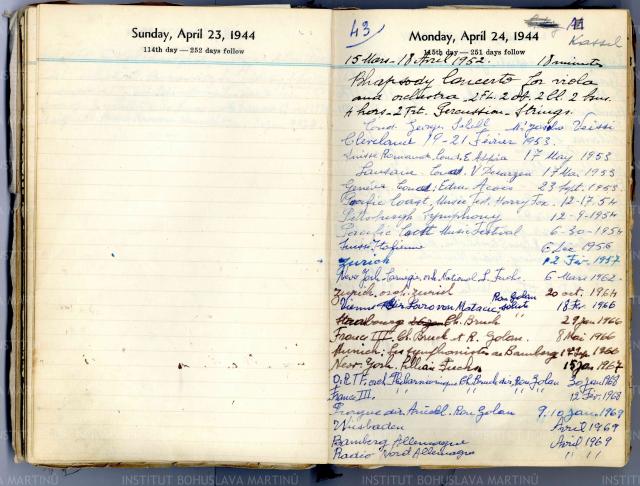 Sunday, April 23, 1944
114th day — 252 days follow
43
Kassel
Monday, April 24, 1944
115th day — 251 days follow
15 Mars - 18 Avril 1952. 18 minutes
Rhapsody Concerto for viola
and orchestra - 2 Fl. 2 ob. 2 Cl. 2 bns.
4 hors - 2 Trt. Percussion - Strings.
Cond. George Szell
Cleveland 19-21 Février 1953.
Suisse Romande Cond. E. 17 May 1953
Lausanne Cond. V Desarzens 17 Mai 1953
Genève Cond: Edm. 23 Sept. 1953.
Pacific Coast, Music Fest. Harry Fox. 12-17.54
Symphony 12-9-1954
Pacific Coast Music Festival 6-30-1954
Suisse Italienne 6 Déc 1956
Zurich 12 Fév. 1957
New York - Carnegie, orch. National L. Fuchs. 6 Mars 1962.
Zurich. orch. Zurich 20 oct. 1964
Vienne Dir Lovro von Matacic Ron Golan soliste 18 Fév 1966
Strasbourg Ch. Bruck 29 Jan 1966
France III. Ch. Bruck et R. Golan. 8 Mai 1966
Munich: Les symphonistes de Bamberg 1966
New-York. Lillian Fuchs 15 Jan. 1967
O.R.T.F. orch. Philharmonique Ch. Bruck dir. Ron Golan 30 Jan 1968
France III. " " " 12 Fév. 1968
Prague dir. Ančerl. Ron Golan 9, 10 Jan. 1969
Wiesbaden Avril 1969
Bamberg Allemagne Avril 1969
Radio Nord Allemagne " "
INSTITUT BOHUSLAVA MARTINŮ
INSTITUT BOHUSLAVA MARTINŮ